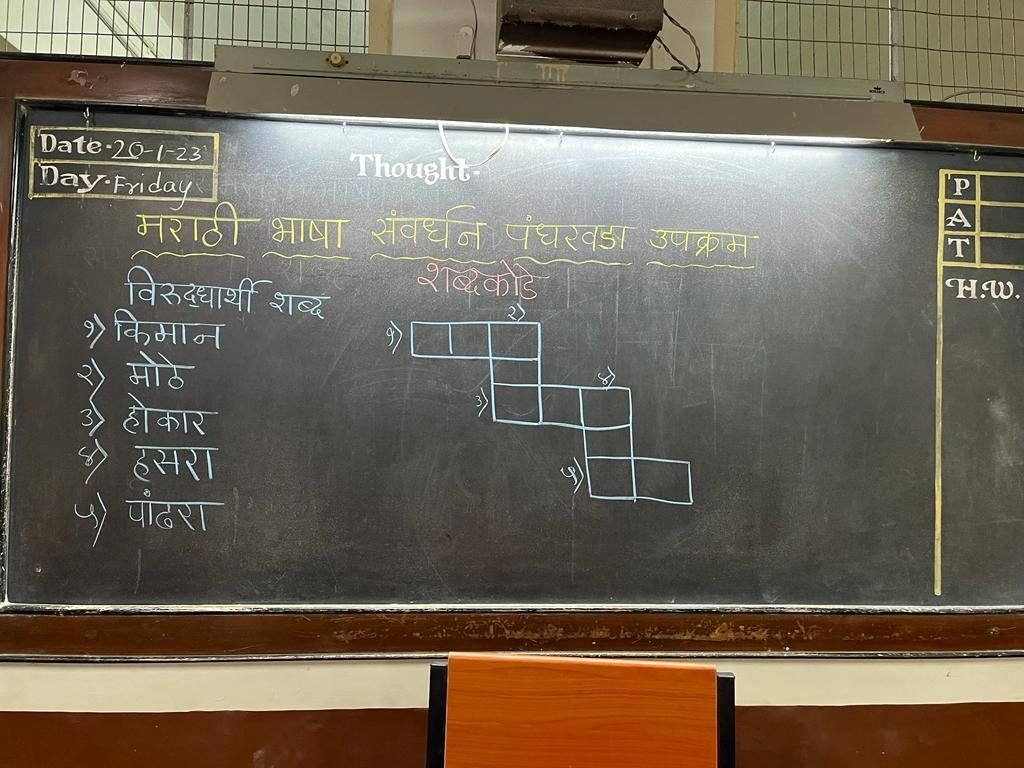 Date. 20-1-23
Day. Friday
Thought.
मराठी भाषा संवर्धन पंधरवडा उपक्रम
शब्दकोडे
विरुद्धार्थी शब्द
१) किमान
२) मोठे
३) होकार
४) हसरा
५) पांढरा
१)
२)
३)
४)
५)
P
A
T
H.W.